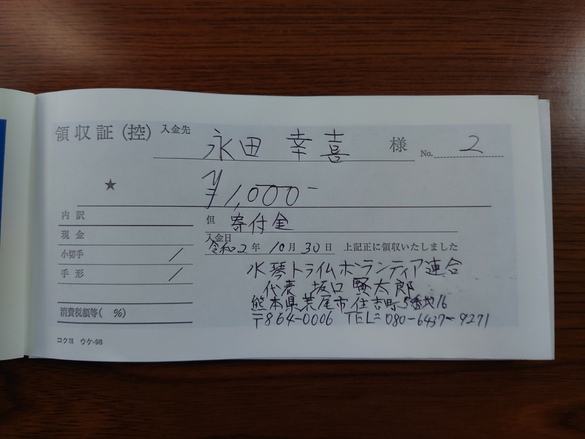 領収証(控) 入金先 永田 幸喜 様 No. 2
★ ¥1,000-
内訳 但 寄付金
現金 入金日 令和2年 10月 30日 上記正に領収いたしました
小切手 /
手形 /
消費税額等( %)
水琴トライムボランティア連合
代表 坂口 賢太郎
熊本県荒尾市住吉町5番地16
〒864-0006 TEL=080-6437-9271
コクヨ ウケ-98